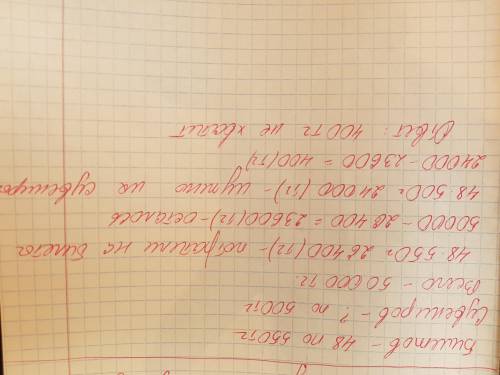 Билетов – 48 по 550 тг
Сувениров – ? по 500 тг
Всего – 50 000 тг.
48·550= 26 400 (тг) – потратили на билеты
50000 – 26 400 = 23600 (тг) – осталось
48·500= 24 000 (тг) – нужно на сувениры
24 000 – 23 600 = 400 (тг)
Ответ: 400 тг не хватит